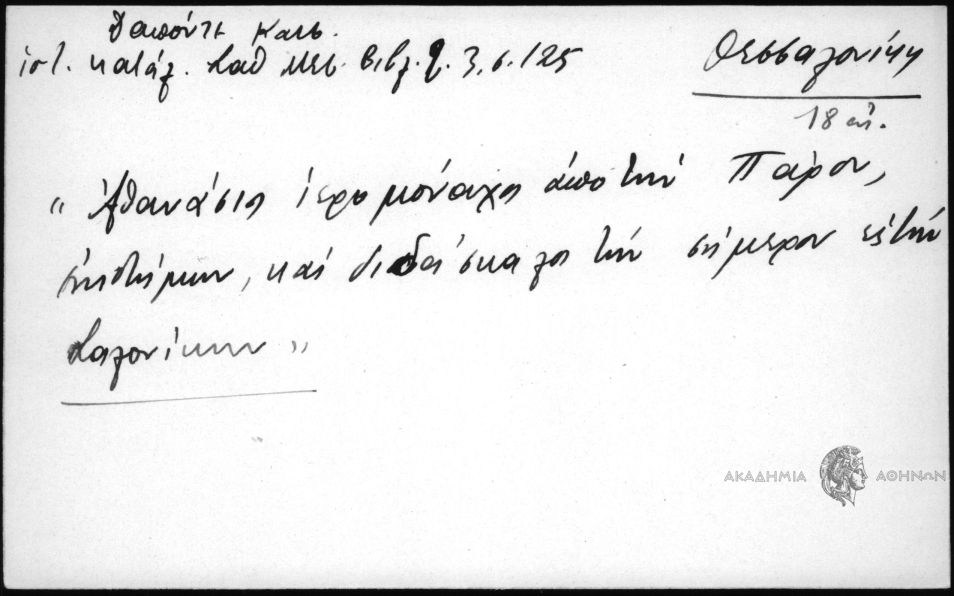 Δαπόντε Καισ.
ἱστ. κατάλ. Σαθ Μεσ. Βιβλ. 3, σ. 125
Θεσσαλονίκη
18 αἰ.
"Ἀθανάσιος ἱερομόναχος ἀπὸ τὴν Πάρον,
ἐπιστήμων, καὶ διδάσκαλος τὴν σήμερον εἰς τὴν
Σαλονίκην"
ΑΚΑΔΗΜΙΑ ΑΘΗΝΩΝ